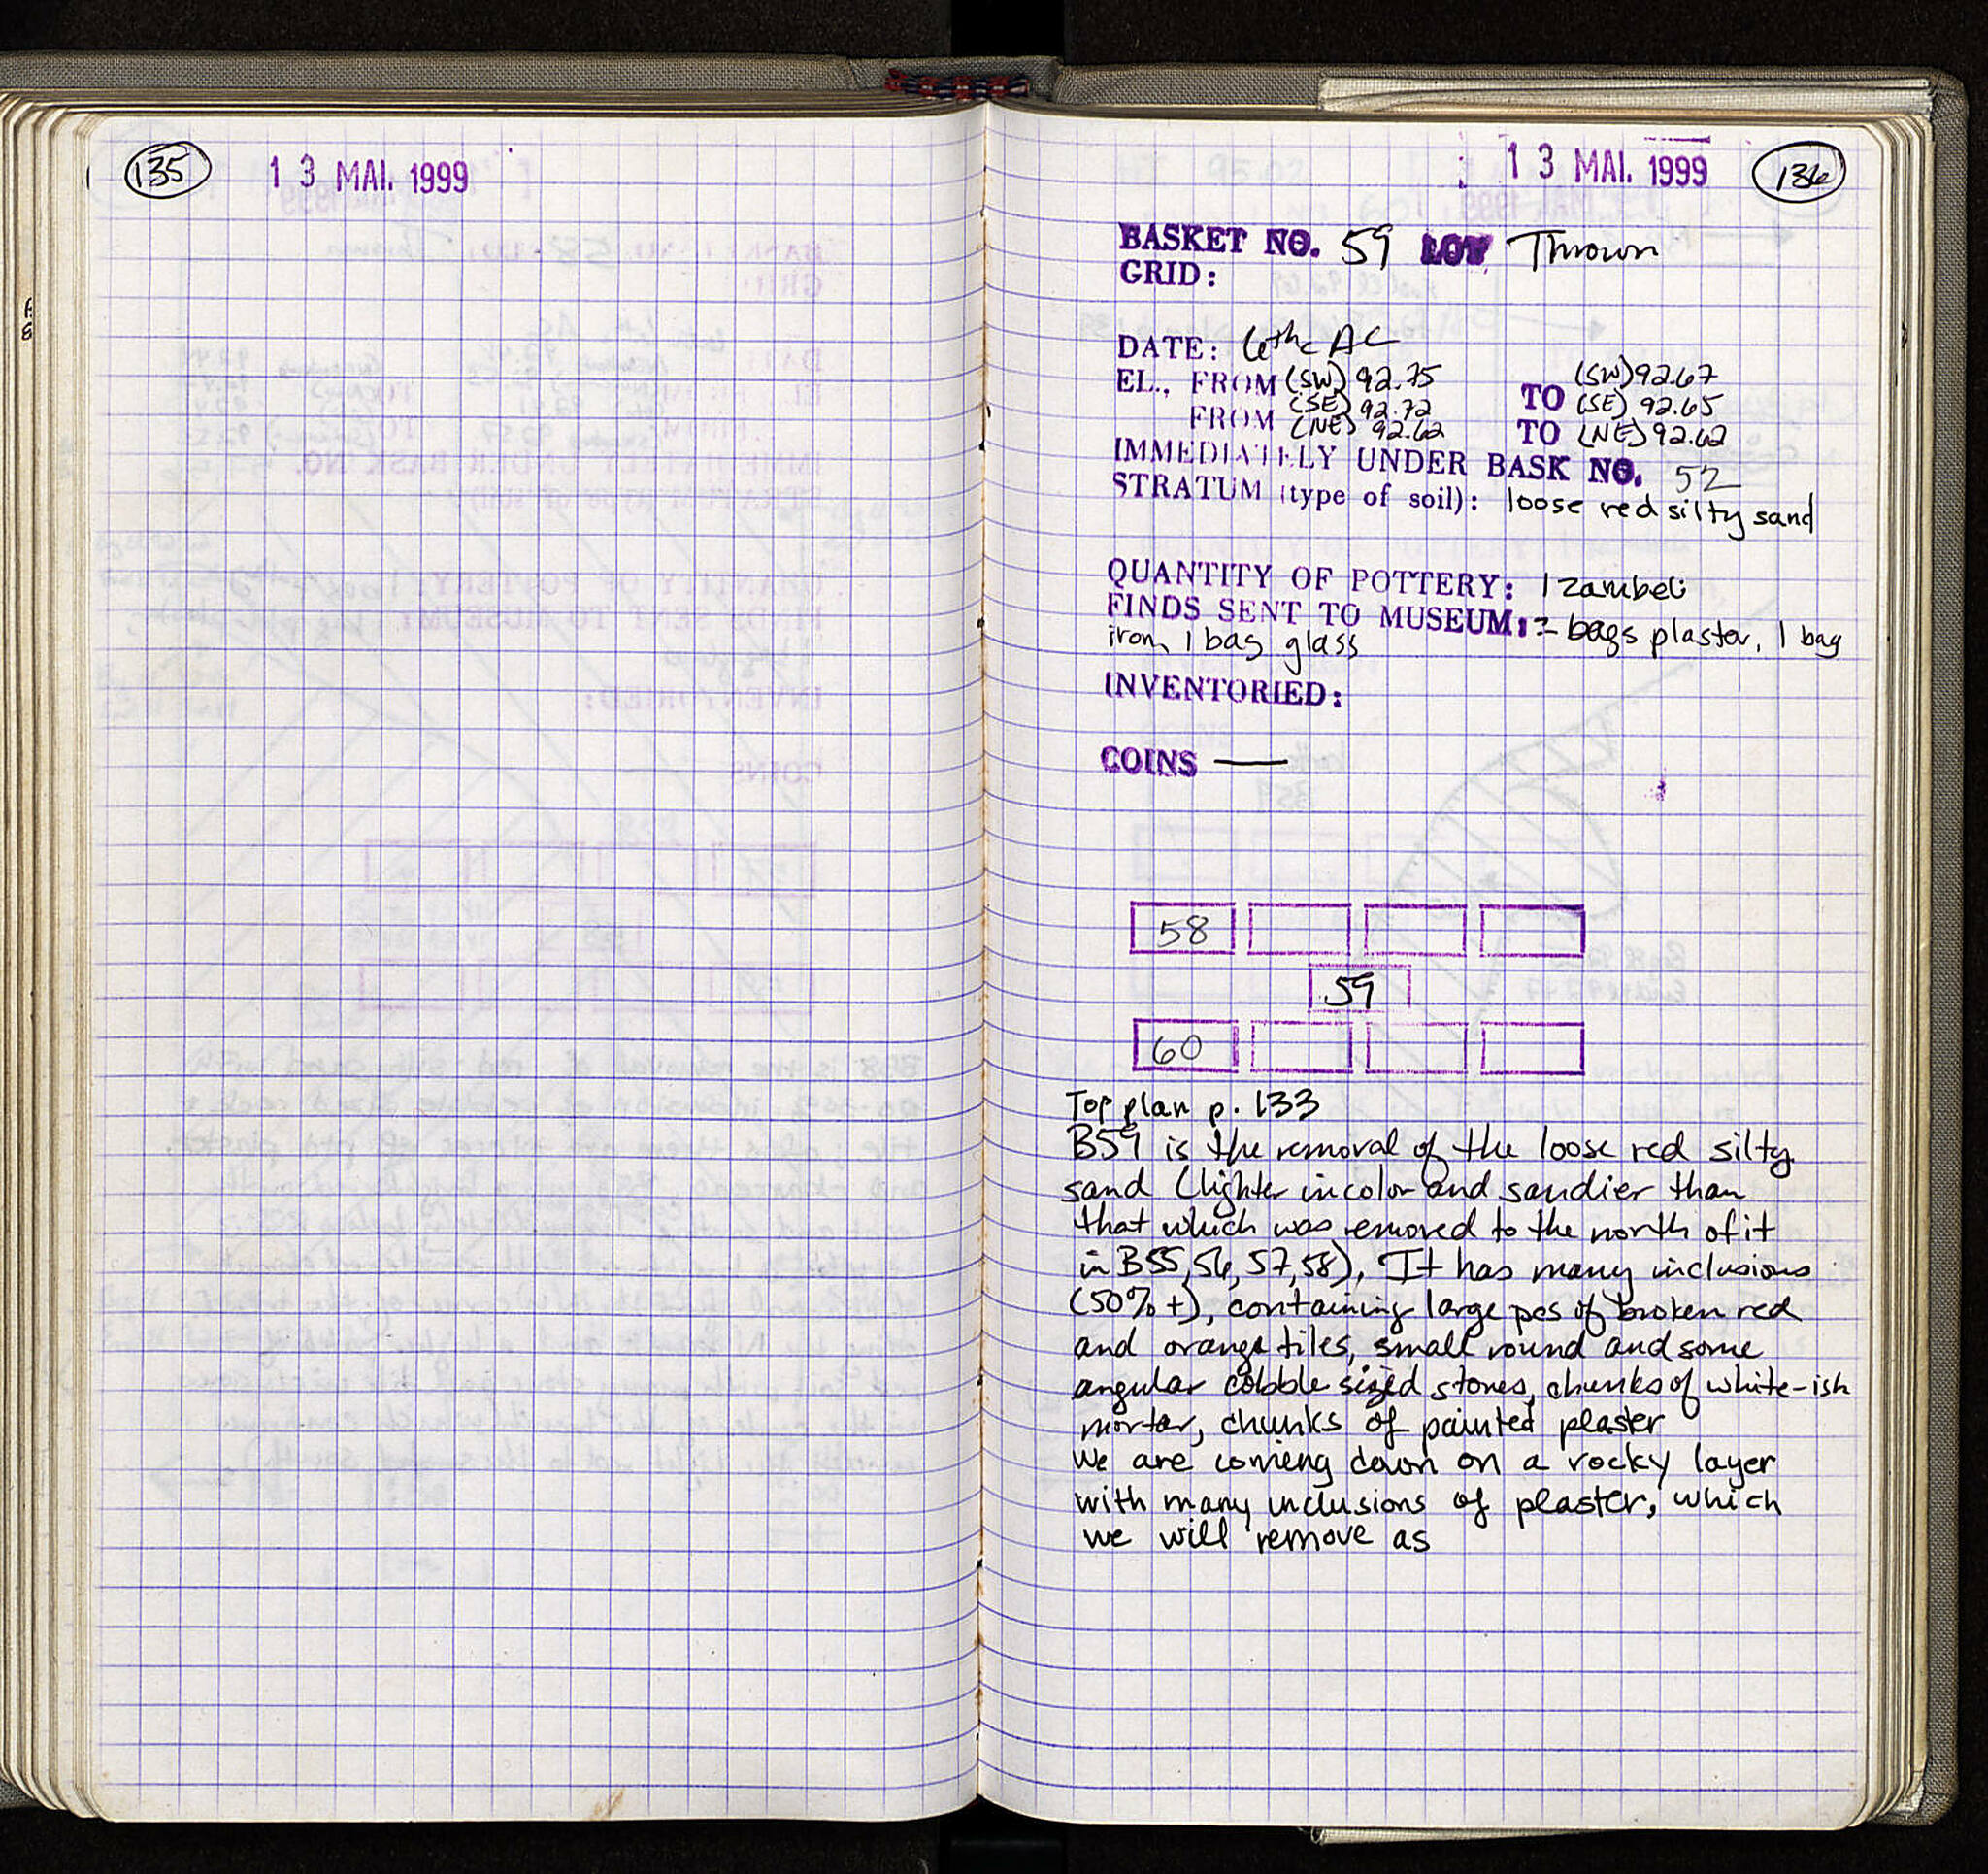 135
13 MAI. 1999
13 MAI. 1999
136
BASKET NO. 59 LOT Thrown
GRID:
DATE: 6th c AC
EL., FROM (SW) 92.75 TO (SW) 92.67
(SE) 92.72 (SE) 92.65
FROM (NE) 92.62 TO (NE) 92.62
IMMEDIATELY UNDER BASK NO. 52
STRATUM (type of soil): loose red silty sand
QUANTITY OF POTTERY: 1 zambeli
FINDS SENT TO MUSEUM: 2 bags plaster, 1 bag
iron, 1 bag glass
INVENTORIED:
COINS —
58
59
60
Top plan p. 133
B59 is the removal of the loose red silty
sand (lighter in color and sandier than
that which was removed to the north of it
in B55, 56, 57, 58). It has many inclusions
(50% +), containing large pcs of broken red
and orange tiles, small round and some
angular cobble sized stones, chunks of white-ish
mortar, chunks of painted plaster
We are coming down on a rocky layer
with many inclusions of plaster, which
we will remove as